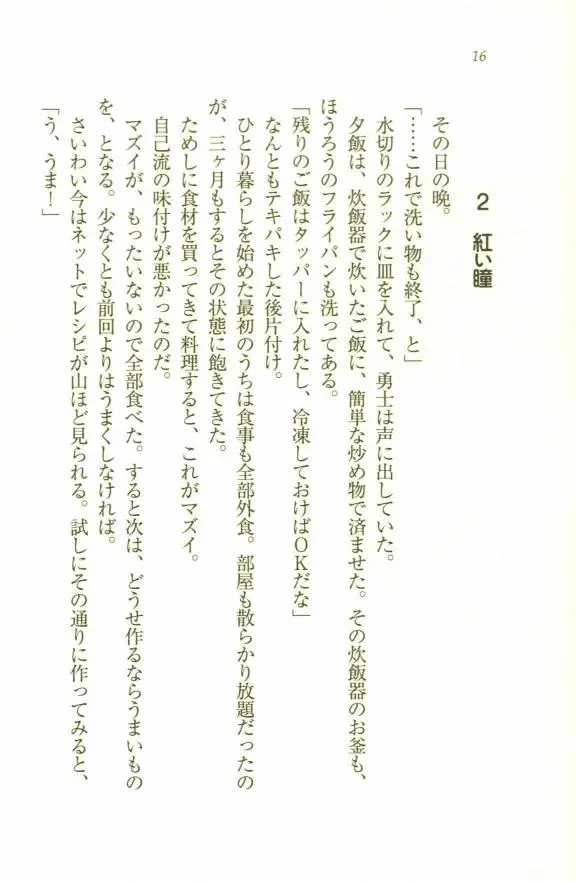 16
2 紅い瞳
その日の晩。
「……これで洗い物も終了、と」
水切りのラックに皿を入れて、勇士は声に出していた。
夕飯は、炊飯器で炊いたご飯に、簡単な炒め物で済ませた。その炊飯器のお釜も、
ほうろうのフライパンも洗ってある。
「残りのご飯はタッパーに入れたし、冷凍しておけばＯＫだな」
なんともテキパキした後片付け。
ひとり暮らしを始めた最初のうちは食事も全部外食。部屋も散らかり放題だったの
が、三ヶ月もするとその状態に飽きてきた。
ためしに食材を買ってきて料理すると、これがマズイ。
自己流の味付けが悪かったのだ。
マズイが、もったいないので全部食べた。すると次は、どうせ作るならうまいもの
を、となる。少なくとも前回よりはうまくしなければ。
さいわい今はネットでレシピが山ほど見られる。試しにその通りに作ってみると、
「う、うま！」